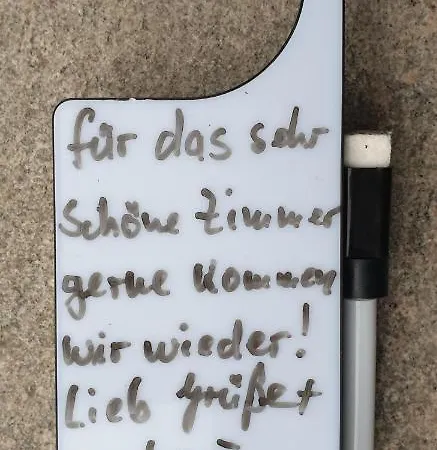 für das sehr
schöne Zimmer
gerne kommen
wir wieder!
Lieb grüßet